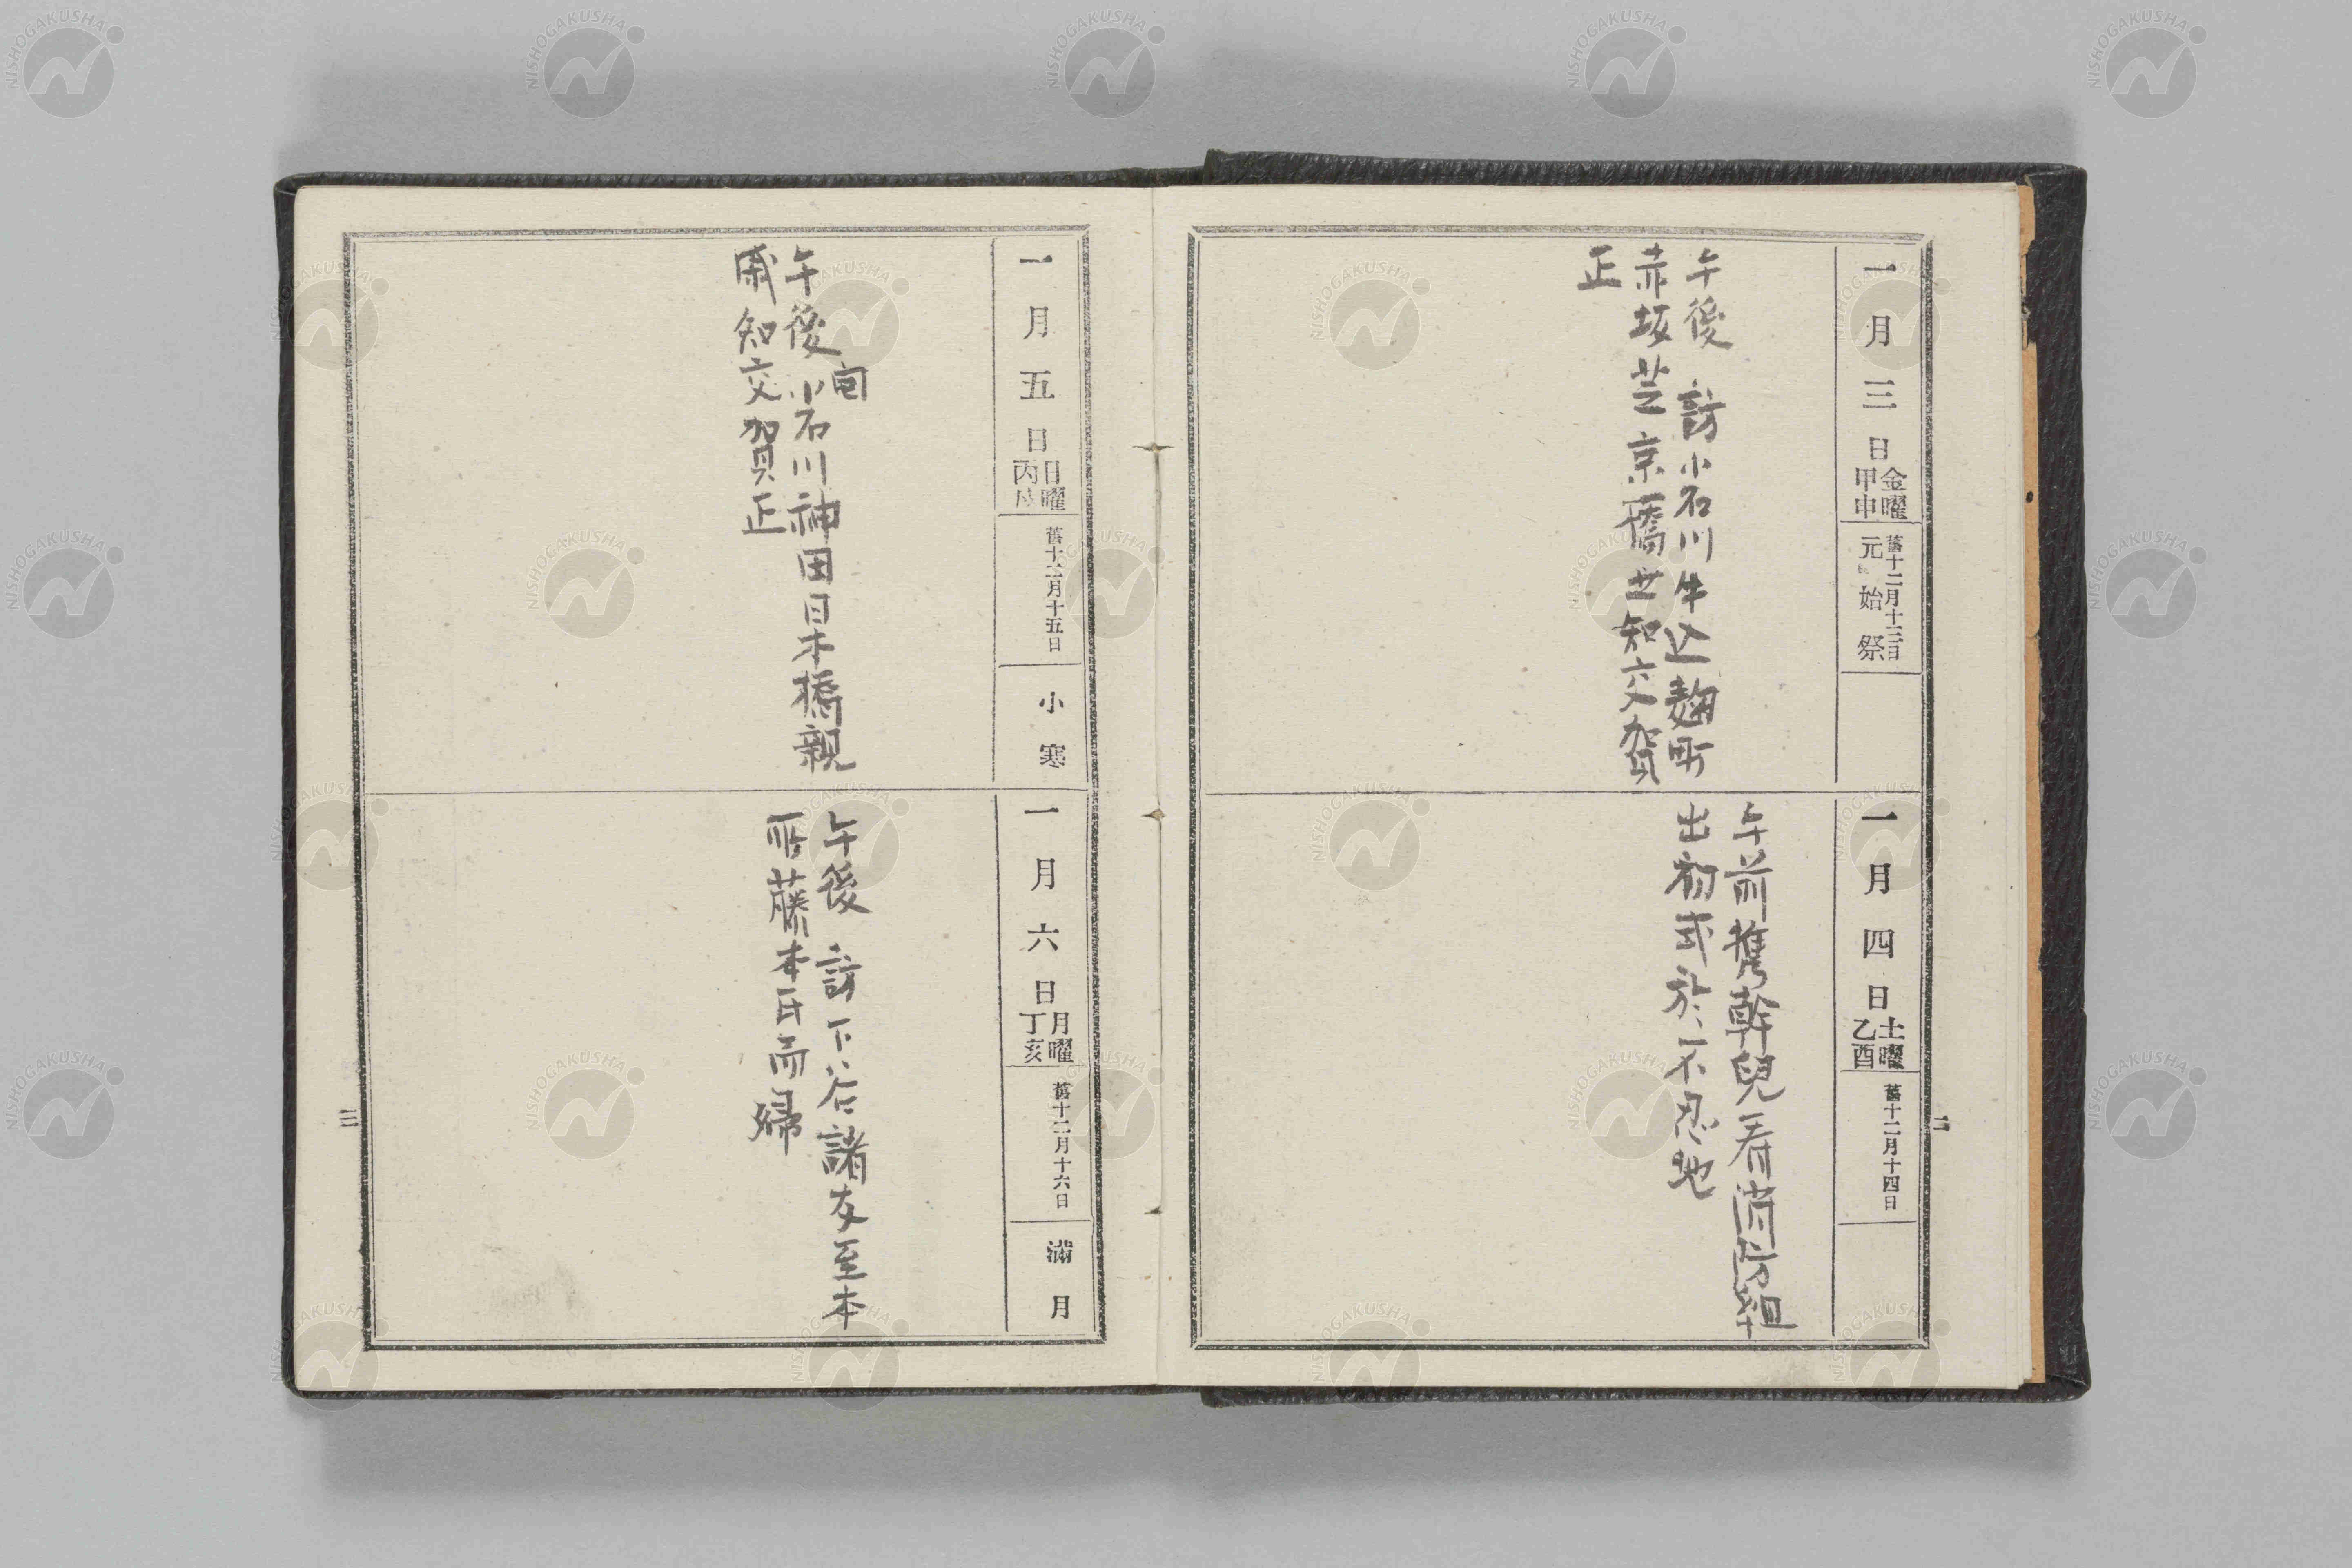 一月三日
金曜
甲申
舊十二月十三日
元始祭
午後 訪小石川牛込麹町
赤坂芝京橋世知交賀
正
一月四日
土曜
乙酉
舊十二月十四日
午前携幹兒看消防組
出初式於不忍池
二
一月五日
日曜
丙戌
舊十二月十五日
小寒
午後回小石川神田日本橋親
戚知交賀正
一月六日
月曜
丁亥
舊十二月十六日
滿月
午後 訪下谷諸友至本
所藤本氏而歸
三
NISHOGAKUSHA